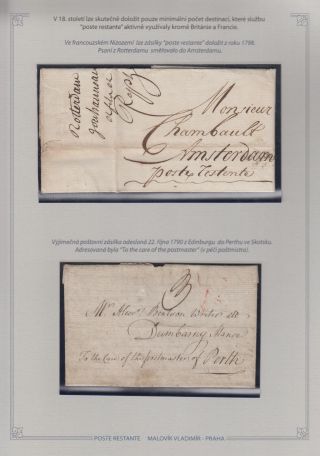 V 18. století lze skutečně doložit pouze minimální počet destinací, které službu
"poste restante" aktivně využívaly kromě Británie a Francie.
Ve francouzském Nizozemí lze zásilky "poste restante" doložit z roku 1798.
Psaní z Rotterdamu směřovalo do Amsterdamu.
Rotterdam
Monsieur
Chambault
Amsterdam
poste restante
Výjimečná poštovní zásilka odeslaná 22. října 1790 z Edinburgu do Perthu ve Skotsku.
Adresovaná byla "To the care of the postmaster" (v péči poštmistra).
Mr. Alexr. Writer
Manse
To the Care of the postmaster of Perth
POSTE RESTANTE MALOVÍK VLADIMÍR - PRAHA